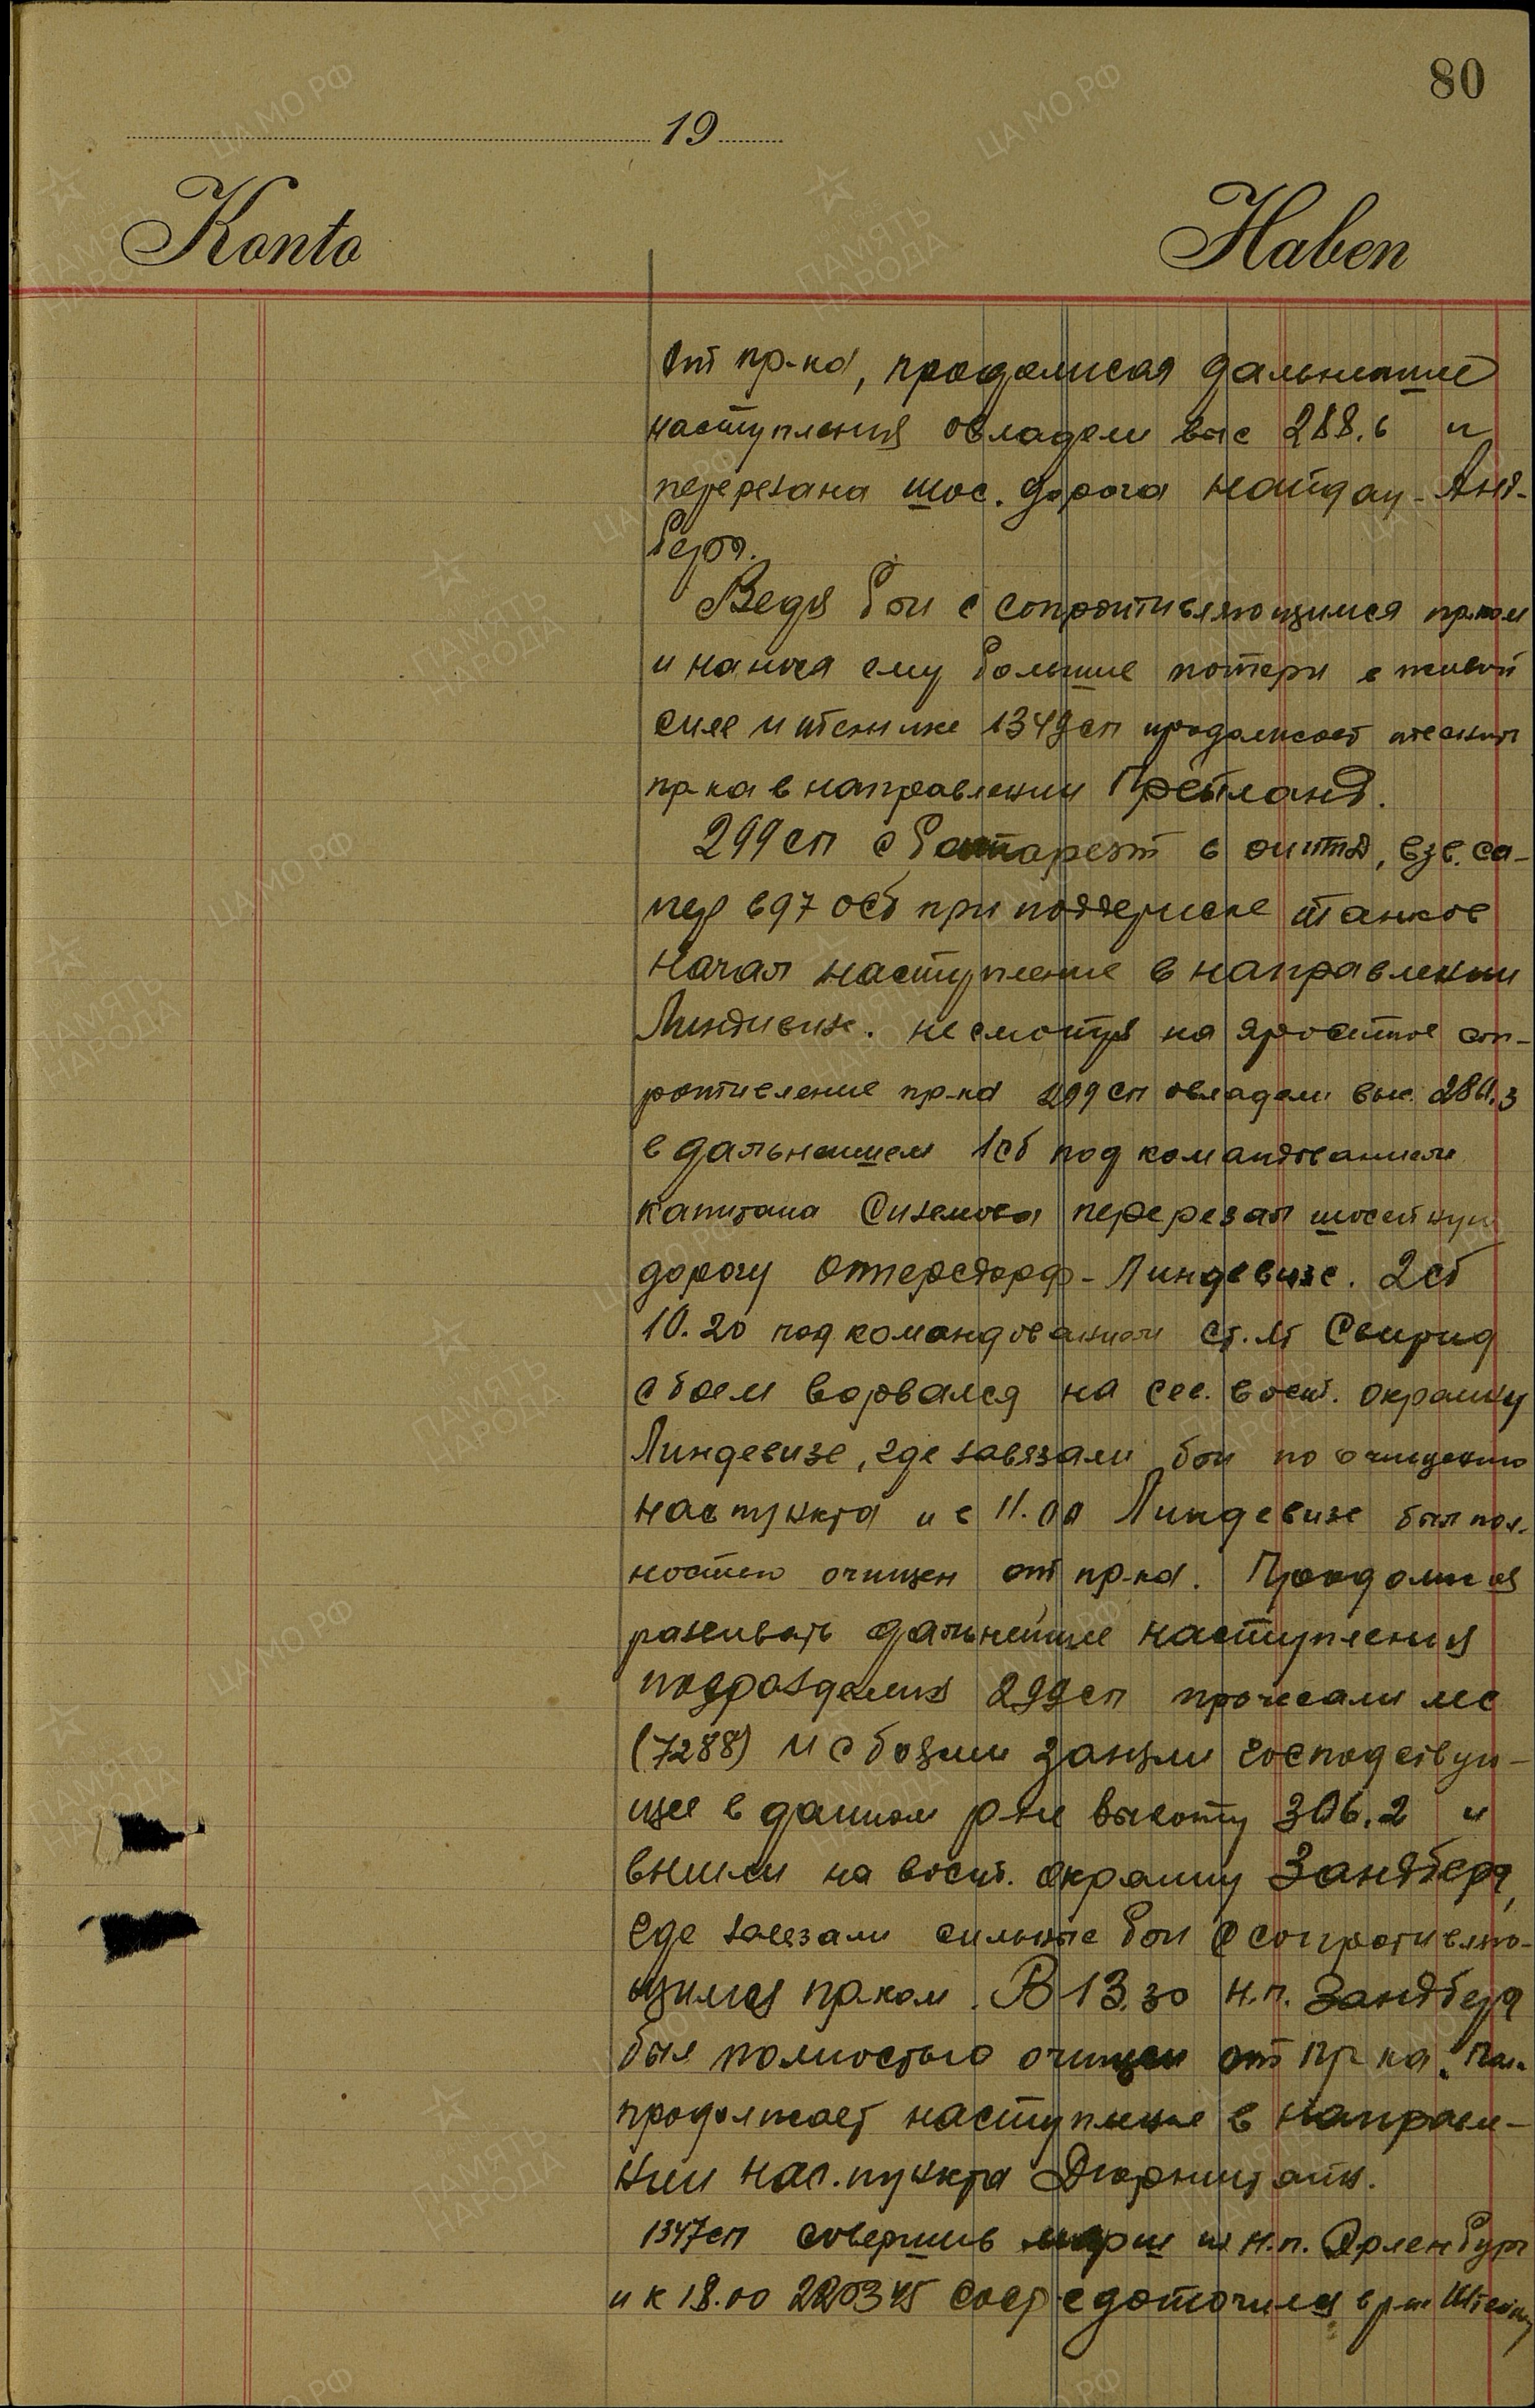 80
19
Konto
Haben
от пр-ка, продолжая дальнейшие
наступления овладели выс 288.6 и
перерезана шос. дорога Найдау - Анд-
берг.
Ведя бои с сопротивляющимся пр-ком
и нанося ему большие потери в живой
силе и технике 1349 сп продолжает теснить
пр-ка в направлении Грейланд.
299 сп с батареей 6 оиптд, взв. са-
пер 697 осб при поддержке танков
начал наступление в направлении
Линдевизе. несмотря на яростное соп-
ротивление пр-ка 299 сп овладели выс. 280.3
в дальнейшем 1 сб под командованием
капитана Сиземова перерезал шосейную
дорогу Оттерсдорф - Линдевизе. 2 сб
10.20 под командованием ст. лт Свирид
с боем ворвался на сев. вост. окраину
Линдевизе, где завязали бои по очищению
нас пункта и в 11.00 Линдевизе был пол-
ностью очищен от пр-ка. Продолжая
развивать дальнейшие наступления
подразделения 299 сп прочесали лес
(7288) и с боями заняли господствую-
щее в данном р-не высоту 306.2 и
вышли на вост. окраину Зандберг,
где завязали сильные бои с сопротивляю-
щимся пр-ком. В 13.30 н.п. Зандберг
был полностью очищен от пр-ка. Полк
продолжает наступление в направле-
нии нас. пункта Дюрнштайн.
1347 сп совершив марш из н.п. Эрленбург
и к 18.00 22.03.45 сосредоточился в р-не
ЦА МО РФ
ПАМЯТЬ НАРОДА